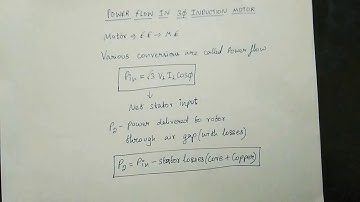 POWER FLOW IN 3φ INDUCTION MOTOR
Motor ⇒ E.E → M.E
Various conversions are called Power flow
Pin = √3 VL IL Cosφ
↓
Net stator input
P2 - power delivered to rotor
through air gap (with losses)
P2 = Pin - stator losses (Core + Copper)